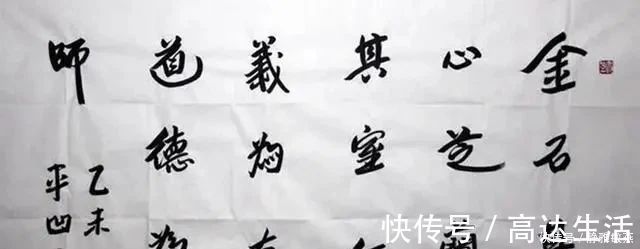 金石
心芝
其室
義為
道德
師
乙未
平凹
快传号 / 高达生活